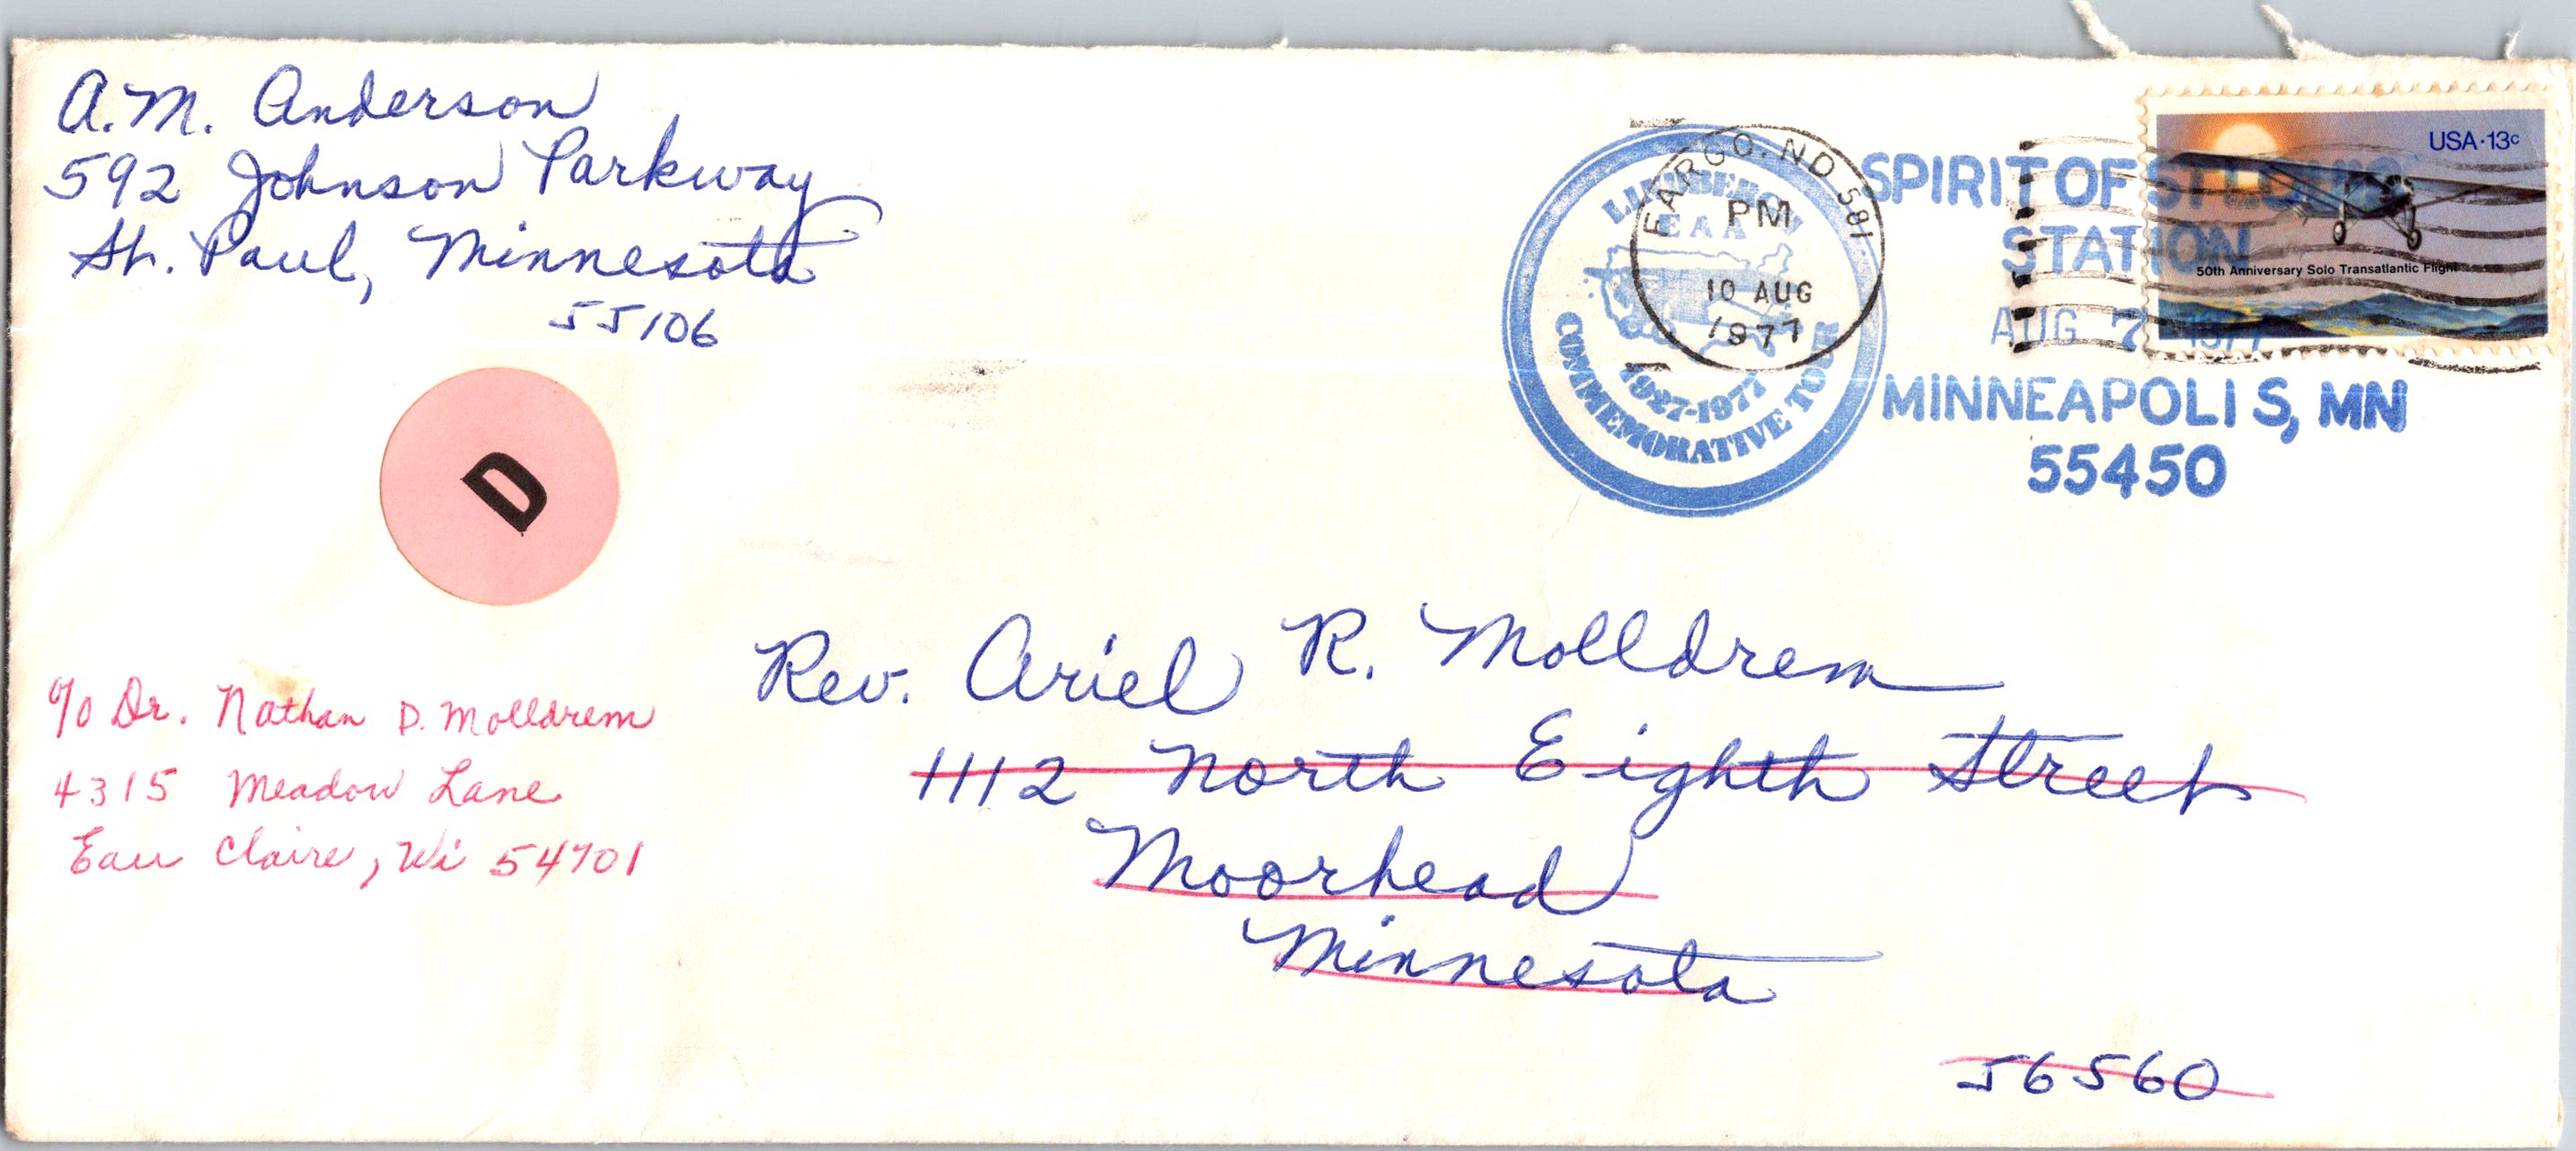 A.M. Anderson
592 Johnson Parkway
St. Paul, Minnesota
55106
D
FARGO, ND 581
PM
10 AUG
1977
LINDBERGH
EAA
1927-1977
COMMEMORATIVE TOUR
SPIRIT OF ST. LOUIS
STATION
AUG 7 1977
MINNEAPOLIS, MN
55450
USA·13c
50th Anniversary Solo Transatlantic Flight
Rev. Ariel R. Molldrem
1112 North Eighth Street
Moorhead
Minnesota
56560
c/o Dr. Nathan D. Molldrem
4315 Meadow Lane
Eau Claire, Wi 54701